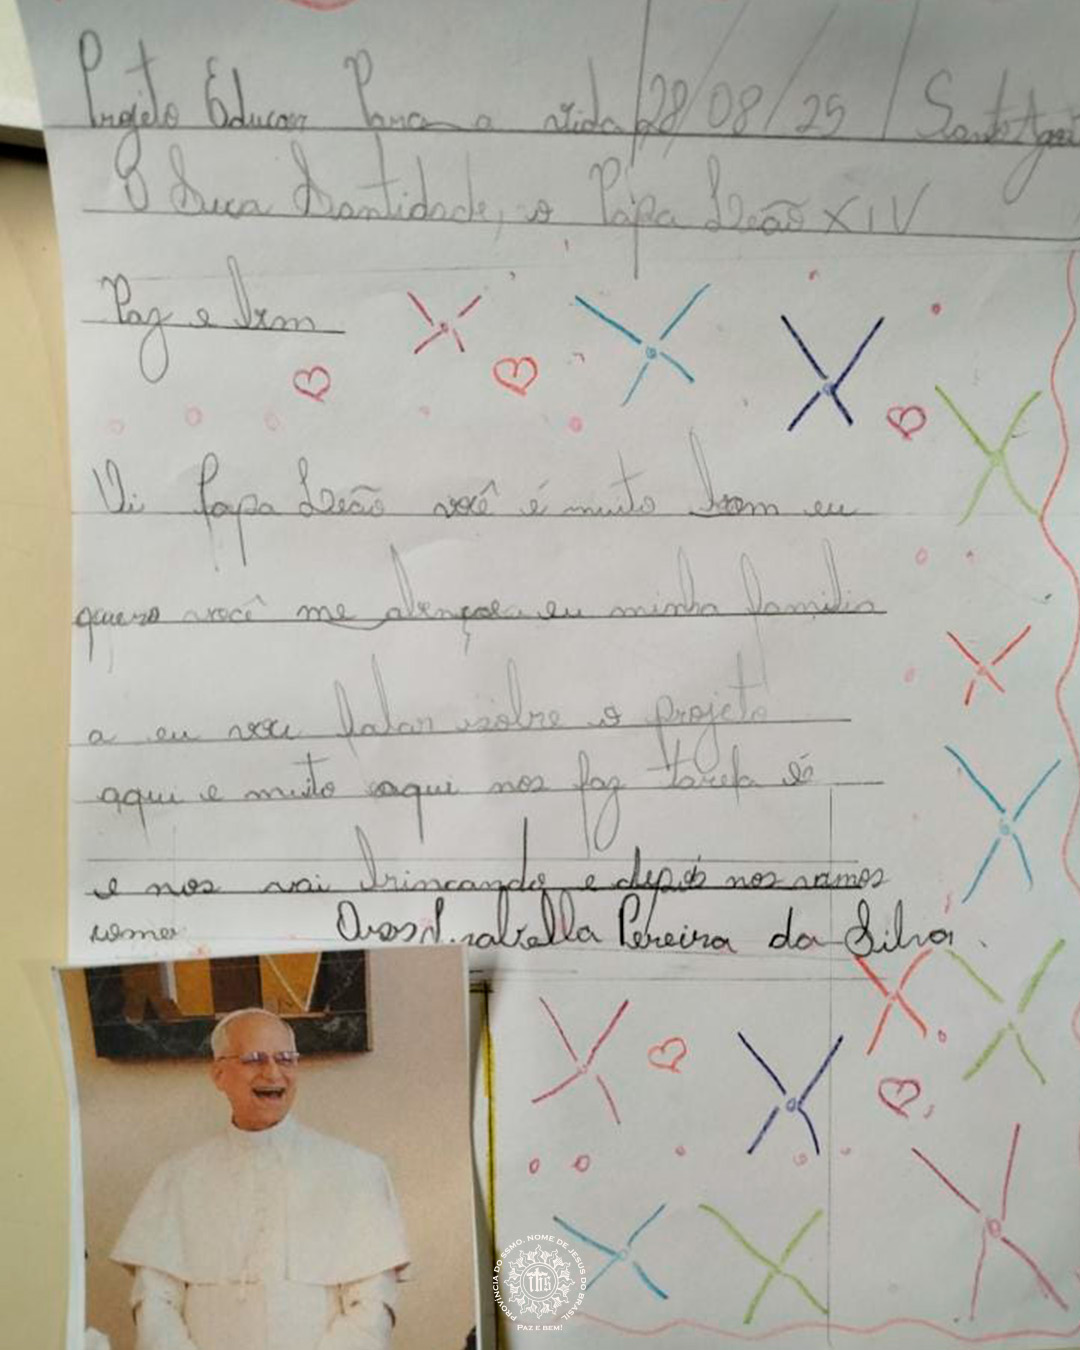 Projeto Educar Para a vida 28/08/25 Santo Agos
A Sua Santidade, o Papa Leão XIV
Paz e Bem
Oi Papa Leão você é muito bom eu
quero você me abençoe eu minha familia
a eu vou falar sobre o projeto
aqui e muito aqui nos faz tarefa é
e nos vai brincando e depois nos vamos
comer Isabella Pereira da Silva.
PROVÍNCIA DO SSMO. NOME DE JESUS DO BRASIL
PAZ E BEM!